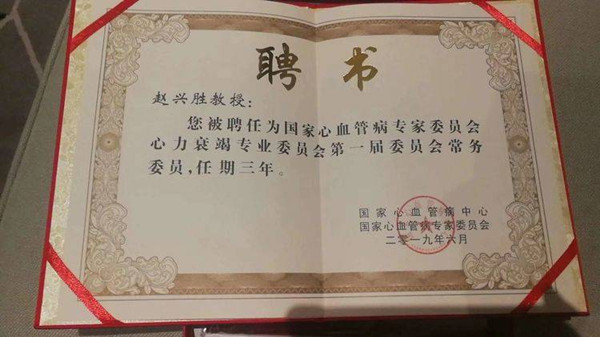 聘书
赵兴胜教授：
您被聘任为国家心血管病专家委员会
心力衰竭专业委员会第一届委员会常务
委员，任期三年。
国家心血管病中心
国家心血管病专家委员会
二零一九年六月